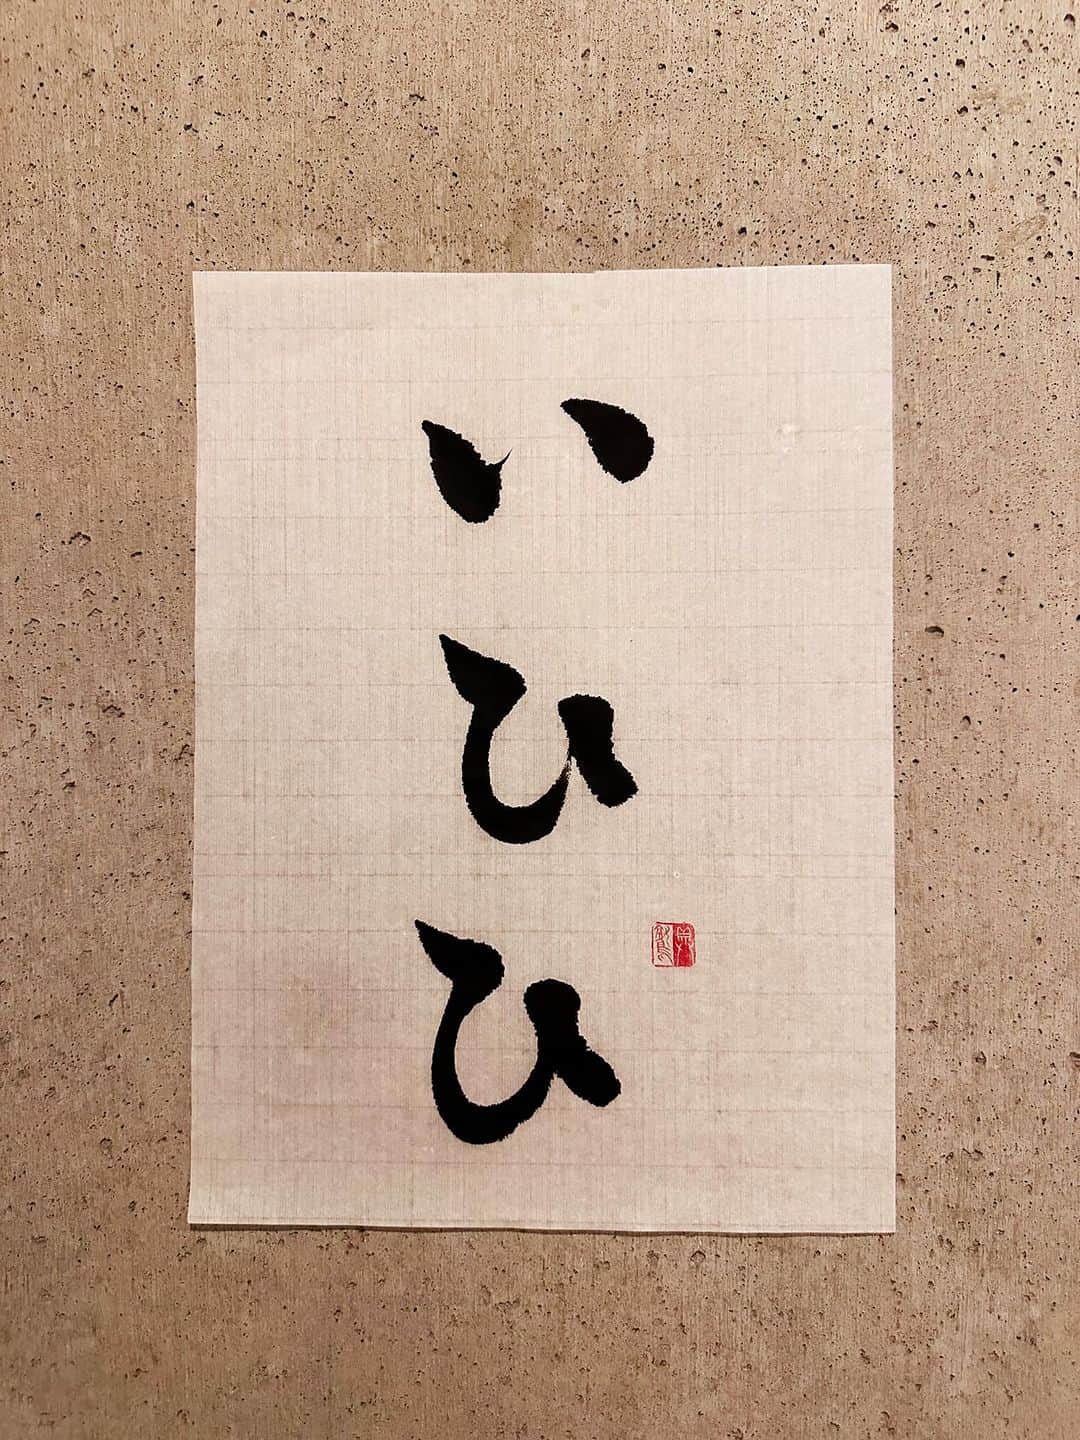 いひひ